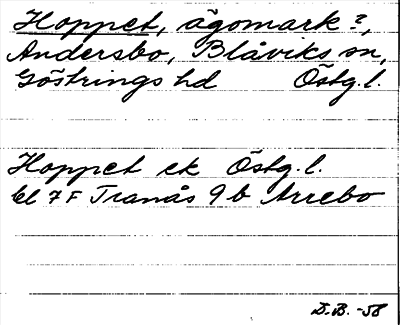 Hoppet, ägomark?,
Andersbo, Blåviks sn,
Göstrings hd Östg.l.
Hoppet ek Östg.l.
bl 7F Tranås 9b Arrebo
D.B. -58